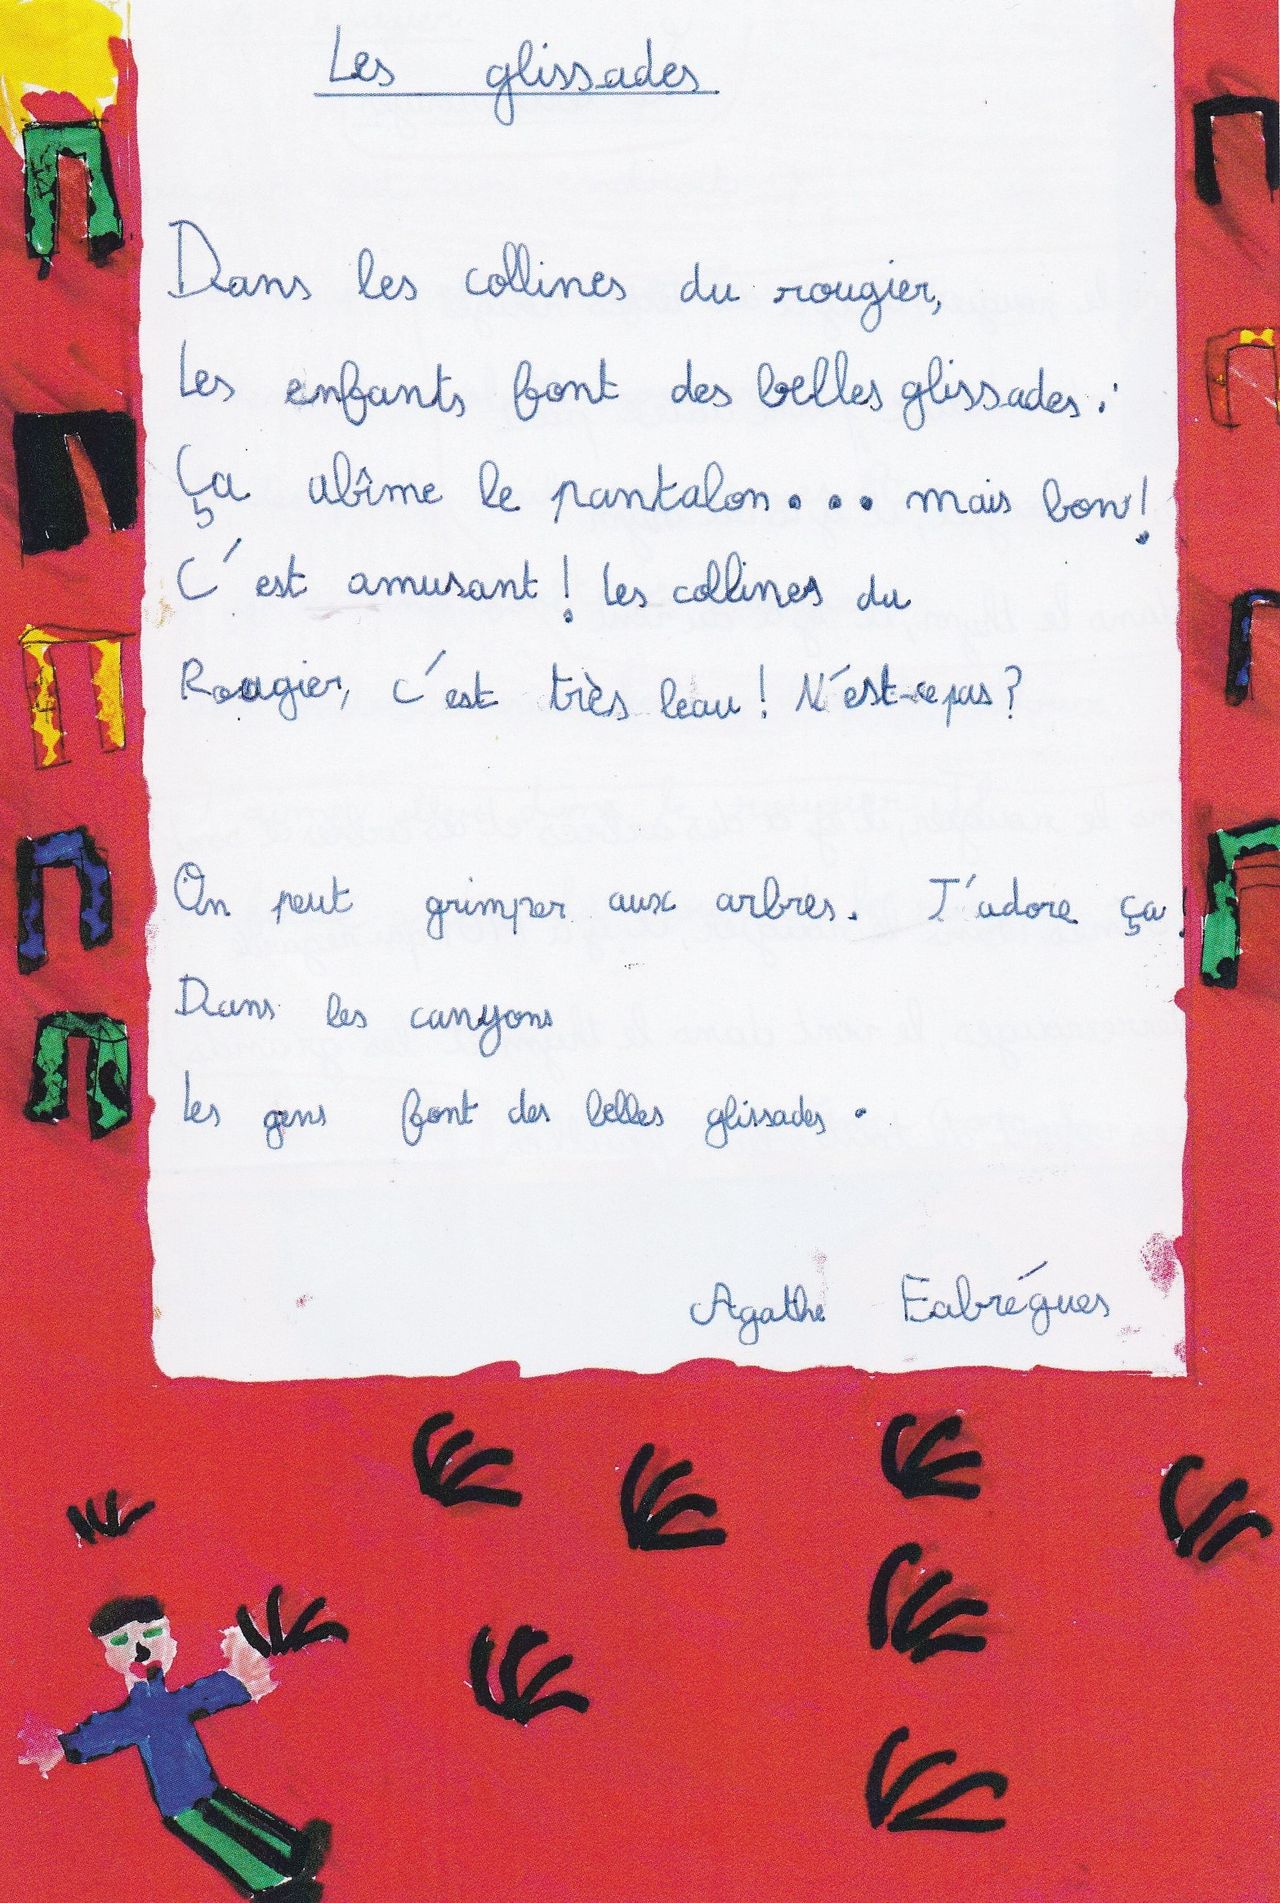 Les glissades
Dans les collines du rougier,
Les enfants font des belles glissades :
Ça abîme le pantalon... mais bon!
C'est amusant ! Les collines du
Rougier, c'est très beau ! N'est-ce pas ?
On peut grimper aux arbres. J'adore ça !
Dans les canyons
Les gens font des belles glissades.
Agathe Fabrégues